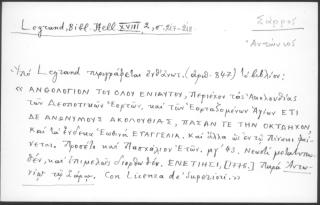 Legrand, Bibl. Hell XVIII 2, σ. 217-218
Σάρρος
Ἀντώνιος
Ὑπὸ Legrand περιγράφεται ἐνθ' ἀνωτ. (ἀριθ. 847) τὸ βιβλίον:
« ΑΝΘΟΛΟΓΙΟΝ ΤΟΥ ΟΛΟΥ ΕΝΙΑΥΤΟΥ, Περιέχον τὰς Ἀκολουθίας
τῶν Δεσποτικῶν Ἑορτῶν, καὶ τῶν Ἑορταζομένων Ἁγίων ΕΤΙ
ΔΕ ΑΝΩΝΥΜΟΥΣ ΑΚΟΛΟΥΘΙΑΣ, ΠΑΣΑΝ ΤΕ ΤΗΝ ΟΚΤΩΗΧΟΝ
Καὶ τὰ ἕνδεκα Ἑωθινὰ ΕΥΑΓΓΕΛΙΑ, καὶ ἄλλα ὡς ἐν τῷ Πίνακι φαί-
νεται. Προσέτι καὶ Πασχάλιον Ἐτῶν. Νεωστὶ
καὶ ἐπιμελῶς διορθωθέν. ΕΝΕΤΙΗΣΙ, [1775.] Παρὰ Ἀντω-
νίῳ τῷ Σάρῳ. Con Licenza de' Superiori.»